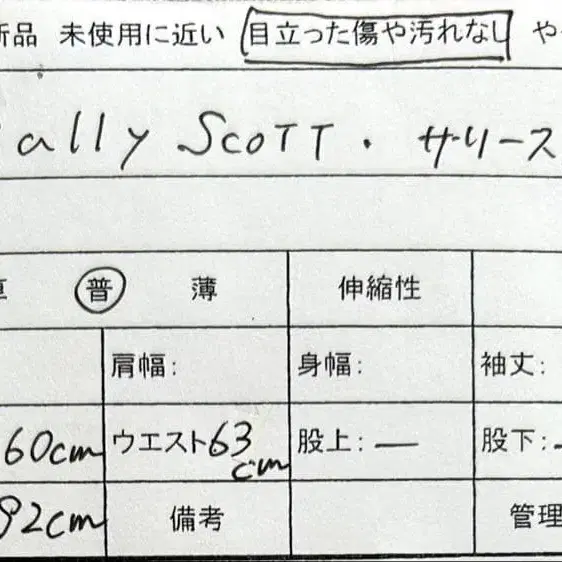 新品 未使用に近い 目立った傷や汚れなし や
ally Scott・ザリース
普 薄 伸縮性
肩幅: 身幅: 袖丈:
60cm ウエスト63cm 股上:— 股下:-
92cm 備考 管理